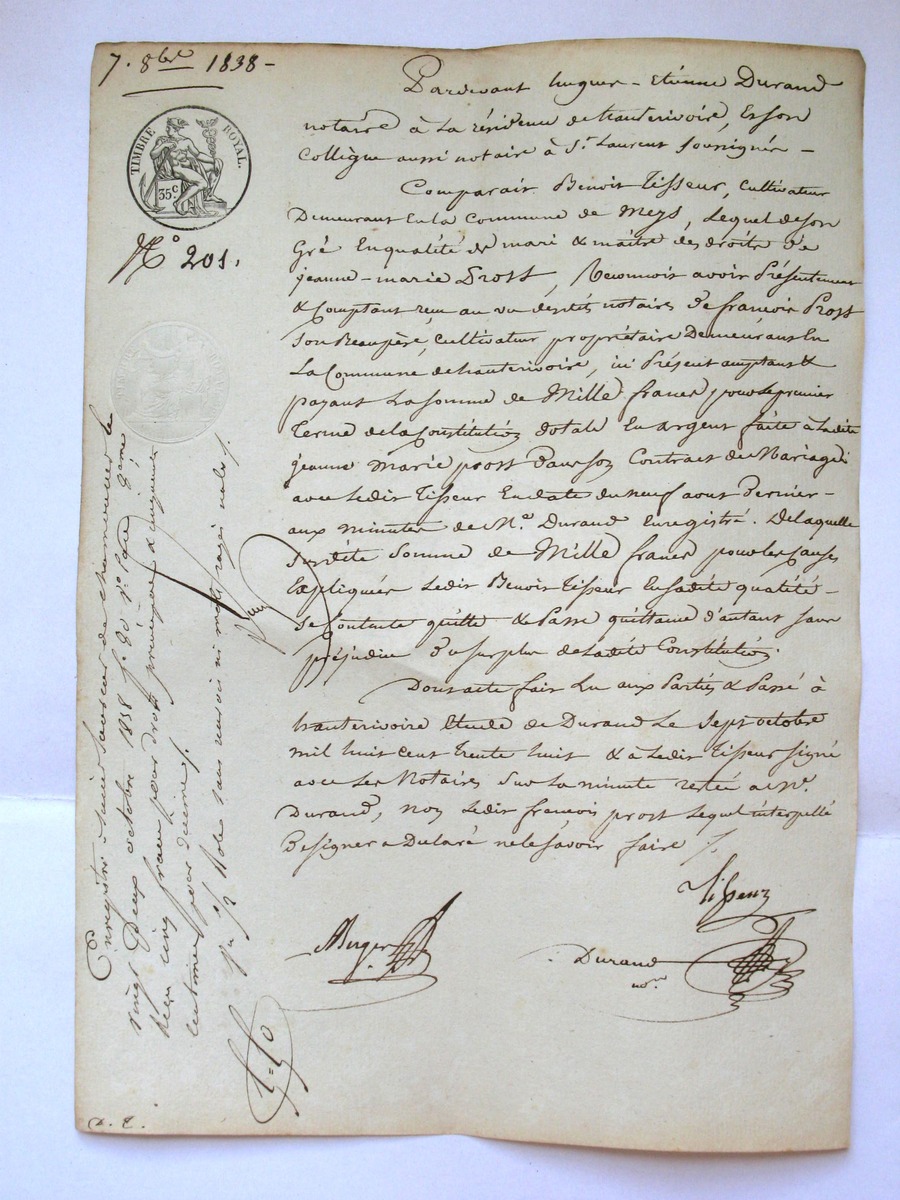 7. 8bre 1838 -
TIMBRE ROYAL.
35 c.
N° 201.
Pardevant hugues - Etienne Durand
notaire à La résidence de hauterivoire, Et son
Collègue aussi notaire à St. Laurent soussignés -
Comparait Benoit Tisseur, Cultivateur
Demeurant En la Commune de Meys, Lequel de son
Gré En qualité de mari & maitre des droits de
jeanne - marie Prost, Reconnoit avoir Présentement
& Comptant reçu au vu desdits notaires De françois Prost
Son Beaupère, Cultivateur propriétaire Demeurant En
La Commune de hauterivoire, ici Présent acceptant &
payant La somme de Mille francs pour le premier
Terme de la Constitution dotale En argent faite à Ladite
jeanne marie prost Dans son Contract de Mariage
avec Ledit Tisseur En date du neuf aout Dernier -
aux minutes de Me. Durand Enregistré. De laquelle
Susdite Somme de Mille francs pour les causes
Expliquées Ledit Benoit Tisseur En sadite qualité -
se Contente quitte & Passe quittance d'autant sans
préjudice Du surplus de Ladite Constitution.
Dont acte fait Lu aux Parties & Passé à
hauterivoire Etude de Durand Le sept octobre
mil huit cent trente huit & à Ledit Tisseur signé
avec Les Notaires Sur La minute restée à Me.
Durand, non Ledit françois prost Lequel interpellé
De signer a Déclaré ne le Savoir faire /.
Tisseur
Berger
Durand
nore.
Enregistré à
vingt Deux octobre 1838 f°. 80 V°. Case 2eme
reçu cinq francs pour droits principal & cinquante
centimes pour décime /.
Rôle sans renvoi ni mots rayés nuls /.